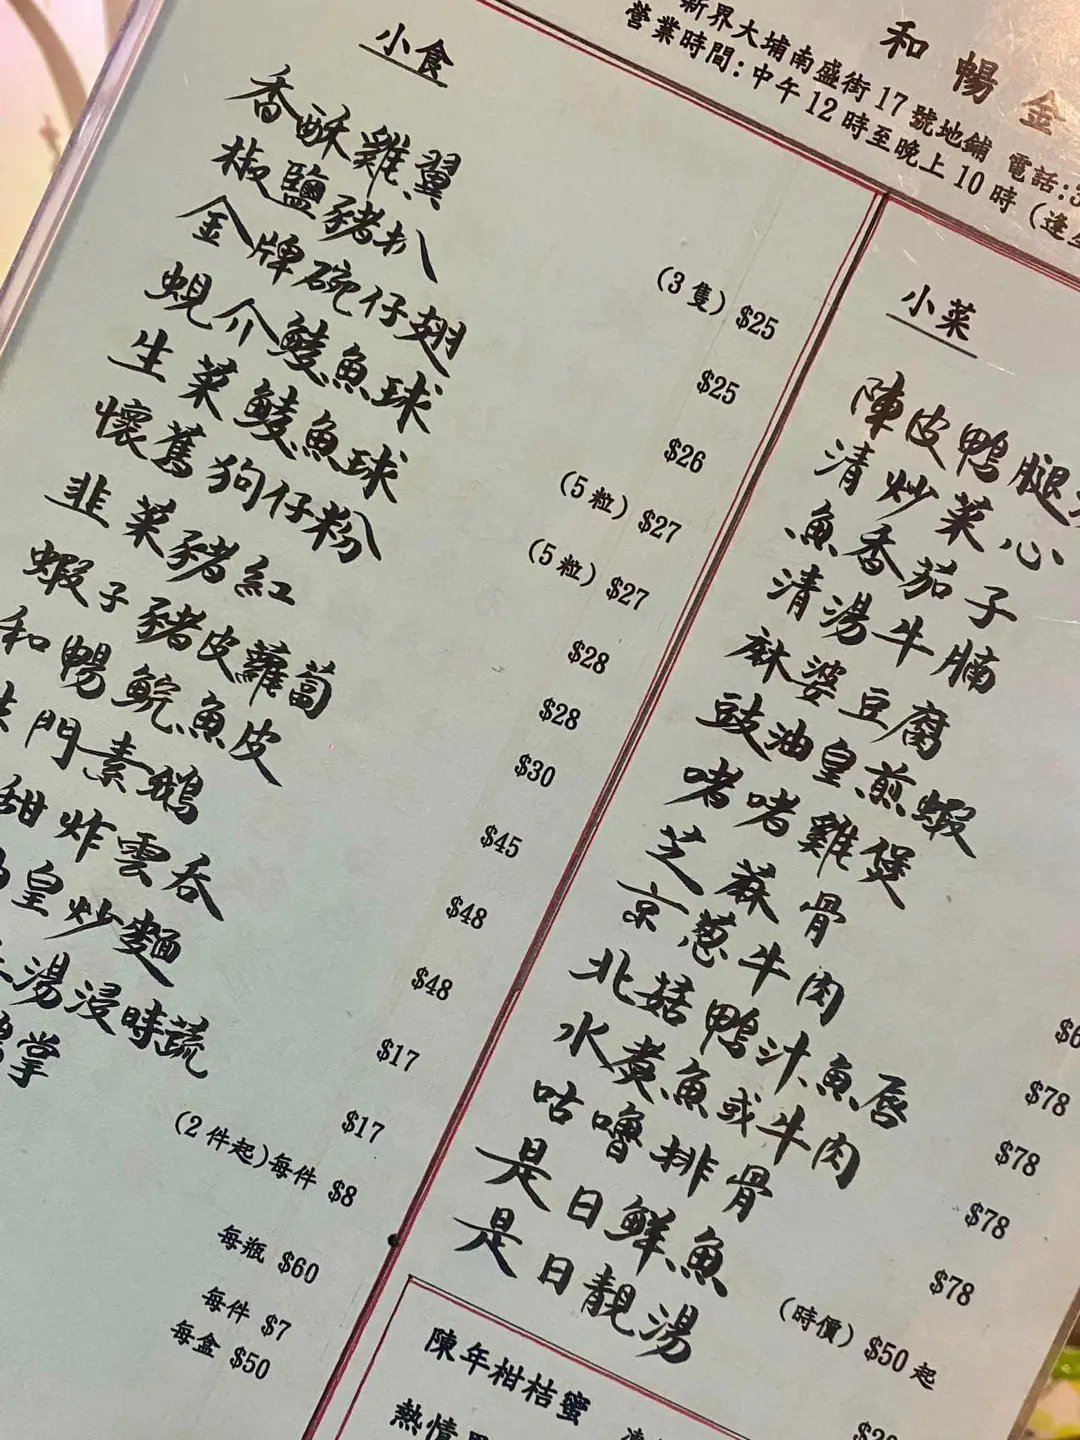 和暢金
新界大埔南盛街17號地鋪 電話:3
營業時間:中午12時至晚上10時(逢星
小食
香酥雞翼 (3隻) $25
椒鹽豬扒 $25
金牌碗仔翅 $26
蜆介鯪魚球 (5粒) $27
生菜鯪魚球 (5粒) $27
懷舊狗仔粉 $28
韭菜豬紅 $28
蝦子豬皮蘿蔔 $30
和暢鯇魚皮 $45
門素鵝 $48
甜炸雲吞 $48
皇炒麵 $17
湯浸時蔬 $17
掌 (2件起)每件 $8
每瓶 $60
每件 $7
每盒 $50
小菜
陳皮鴨腿
清炒菜心
魚香茄子
清湯牛腩
麻婆豆腐
豉油皇煎蝦
啫啫雞煲
芝蔴骨 $6
京蔥牛肉 $78
北菇鴨汁魚唇 $78
水煮魚或牛肉 $78
咕嚕排骨 $78
是日鮮魚 (時價) $50起
是日靚湯
陳年柑桔蜜
熱情